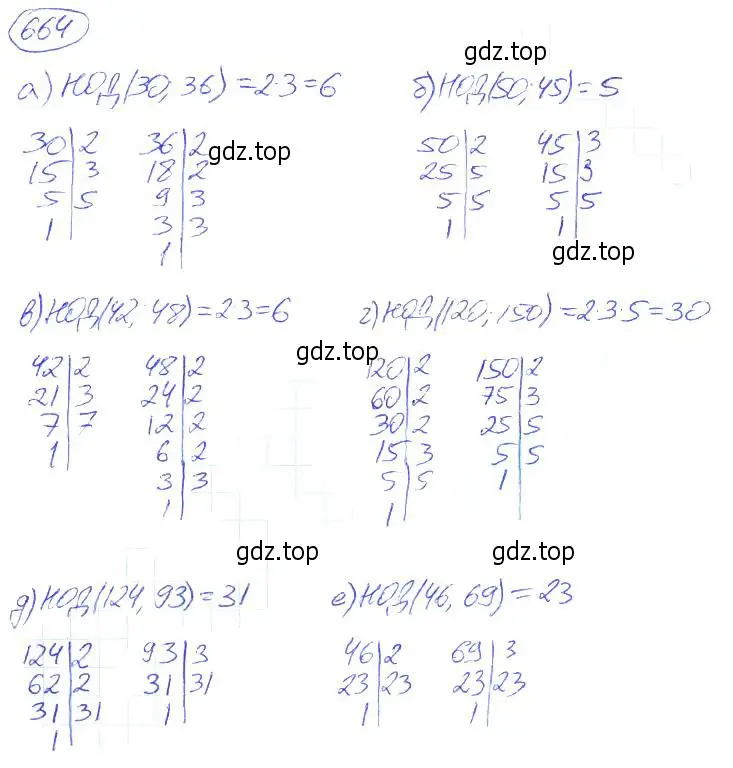 664
gdz.top
а) НОД(30; 36) = 2·3 = 6
б) НОД(50; 45) = 5
30|2
15|3
5|5
1|
36|2
18|2
9|3
3|3
1|
gdz.top
50|2
25|5
5|5
1|
45|3
15|3
5|5
1|
gdz.top
gdz.top
в) НОД(42; 48) = 2·3 = 6
г) НОД(120; 150) = 2·3·5 = 30
42|2
21|3
7|7
1|
48|2
24|2
12|2
6|2
3|3
1|
gdz.top
120|2
60|2
30|2
15|3
5|5
1|
150|2
75|3
25|5
5|5
1|
gdz.top
gdz.top
gdz.top
д) НОД(124, 93) = 31
е) НОД(46, 69) = 23
124|2
62|2
31|31
1|
93|3
31|31
1|
46|2
23|23
1|
69|3
23|23
1|
gdz.top
gdz.top